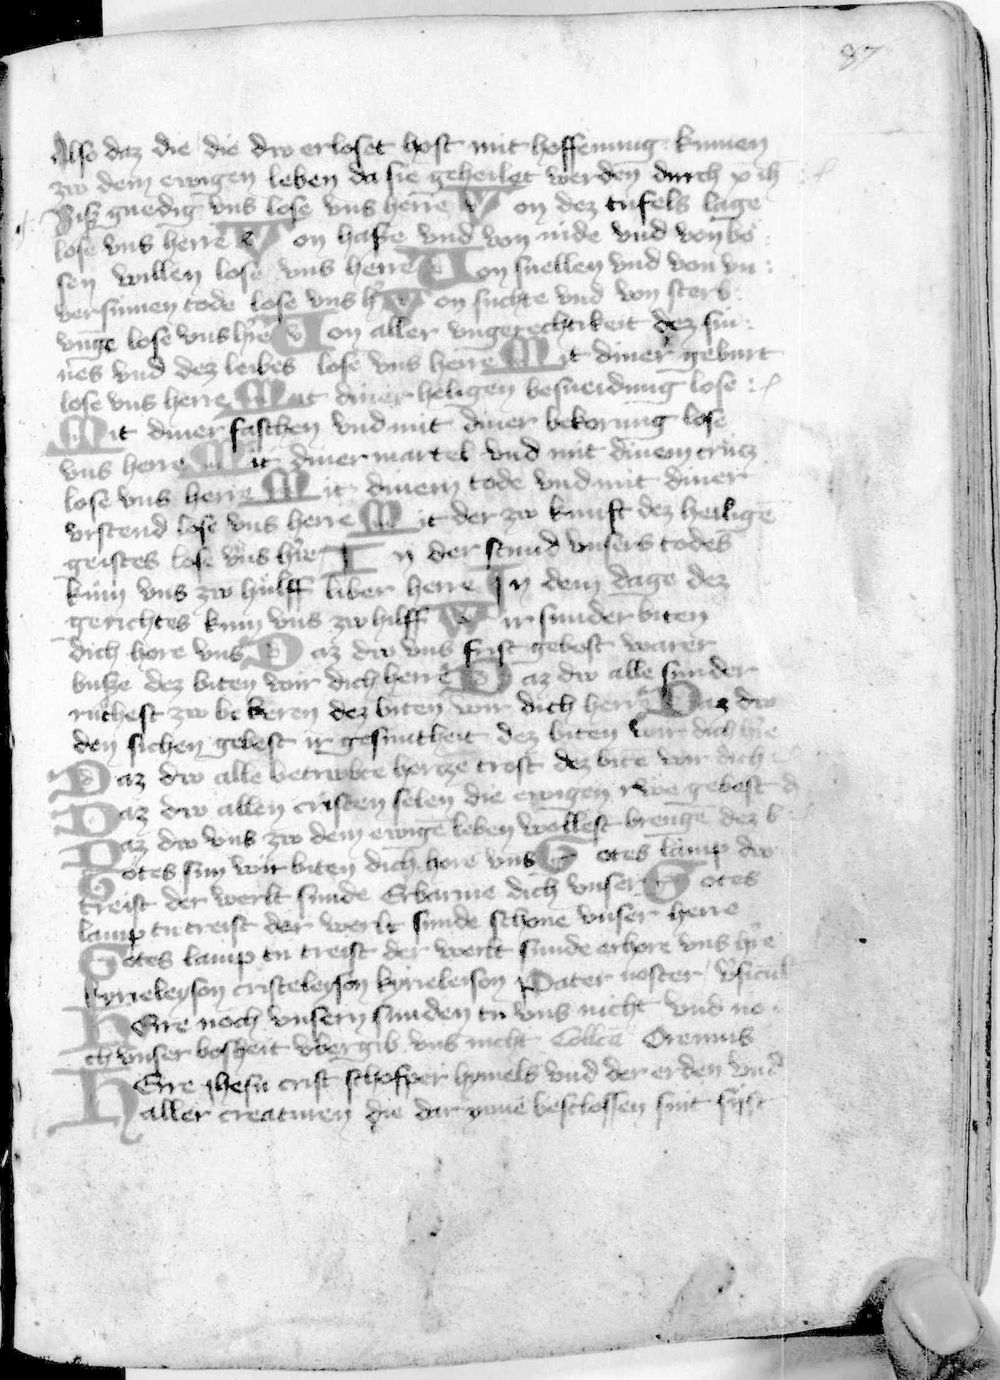 87
Also daz die die dw erloset host mit hoffenung kumen
zw dem ewigen leben da sie geheilet werden durch x ih
Bisz gnedig vns lose vns herre Von dez tufels lage
lose vns herre Von hasse vnd von nide vnd von bo
sen willen lose vns herre Von snellen vnd von vn
versunnen tode lose vns h're Von suchte vnd von sterb
unge lose vns h're Von aller vngerechtikeit dez sin
nes vnd dez leibes lose vns herre Mit diner geburt
lose vns herre Mit diner heligen besneidung lose
Mit diner fasthen vnd mit diner bekorung lose
vns herre Mit diner martel vnd mit dinem crucz
lose vns herre Mit dinem tode vnd mit diner
vrstend lose vns herre Mit der zw kunft dez heilige
geistes lose vns h're In der stund vnsers todes
kum vns zw hulff liber herre In dem dage dez
gerichtes kum vns zw hilff Wir sunder biten
dich hore vns Daz dw vns frist gebest warer
busze dez biten wir dich herre Daz dw alle sunder
ruchest zw bekeren dez biten wir dich herre Daz dw
den sichen gebest ir gesuntheit dez biten wir dich h're
Daz dw alle betrubte hertze trost dez bite wir dich
Daz dw allen cristen selen die ewigen rwe gebest d
Daz dw vns zw dem ewige leben wollest brenge dez b
Gotes sun wir biten dich hore vns Gotes lamp dw
treist der werlt sunde Erbarme dich vnser Gotes
lamp tu treist der werlt sunde schone vnser herre
Gotes lamp tu treist der werlt sunde erhore vns h're
kyrieleyson cristeleyson kyrieleison Pater noster v'sicul
HErre noch vnsern sunden tu vns nicht vnd no
ch vnser bosheit vbergib vns nicht Collcē Oremus
HErre ihesu crist schopfer hymels vnd der erden vnd
aller creaturen die dar ynne besclossen sint